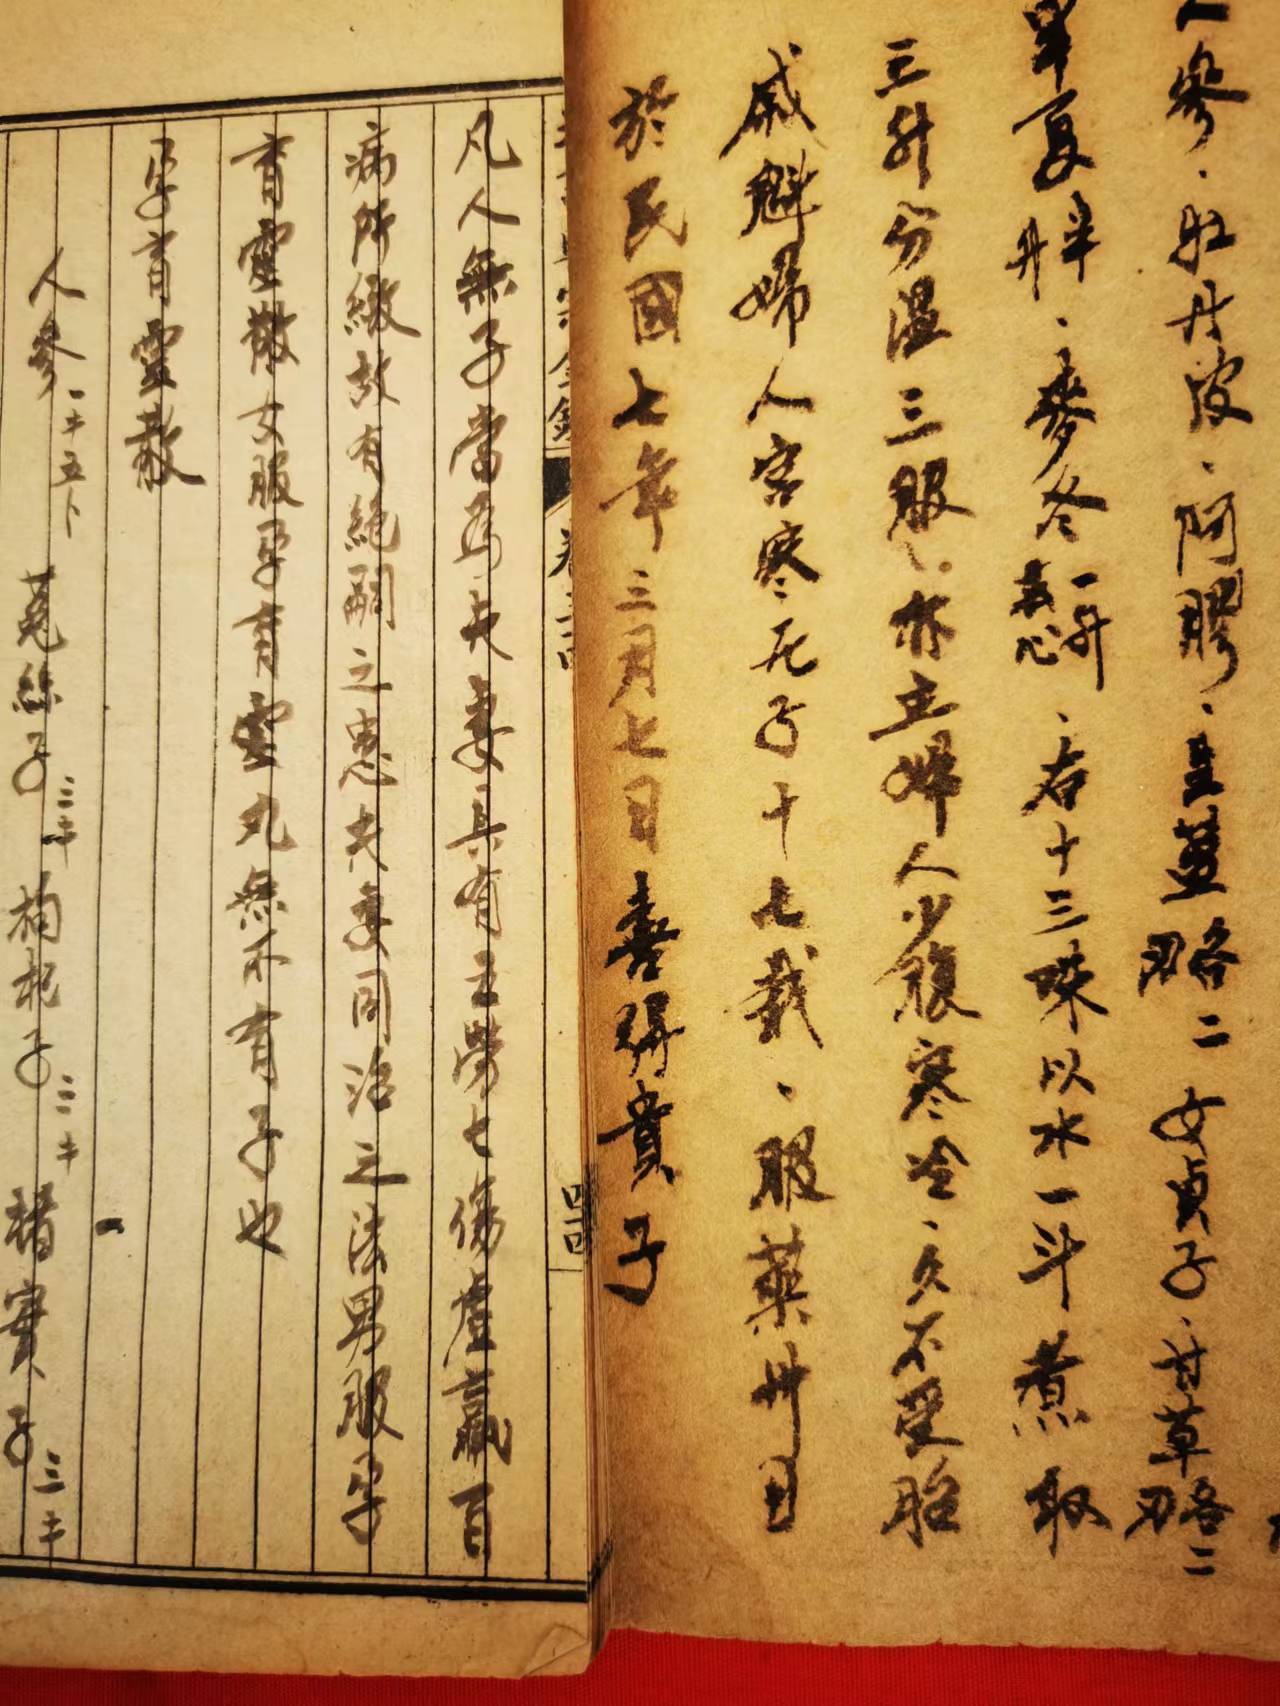 人參、牡丹皮、阿膠、生薑各二兩 女貞子、甘草各二兩
半夏半升、麥冬一升去心、右十三味以水一斗煮取
三升分温三服、亦主婦人少腹寒冷、久不受胎
戚魁婦人宮寒无子十七載、服藥卅日
於民國七年三月七日喜得貴子
凡人無子當為夫妻具有五勞七傷虛羸百
病所緻故有絕嗣之患夫妻同治之法男服孕
育靈散女服孕育靈丸無不育子也
孕育靈散
人參 菟絲子 枸杞子 楮實子